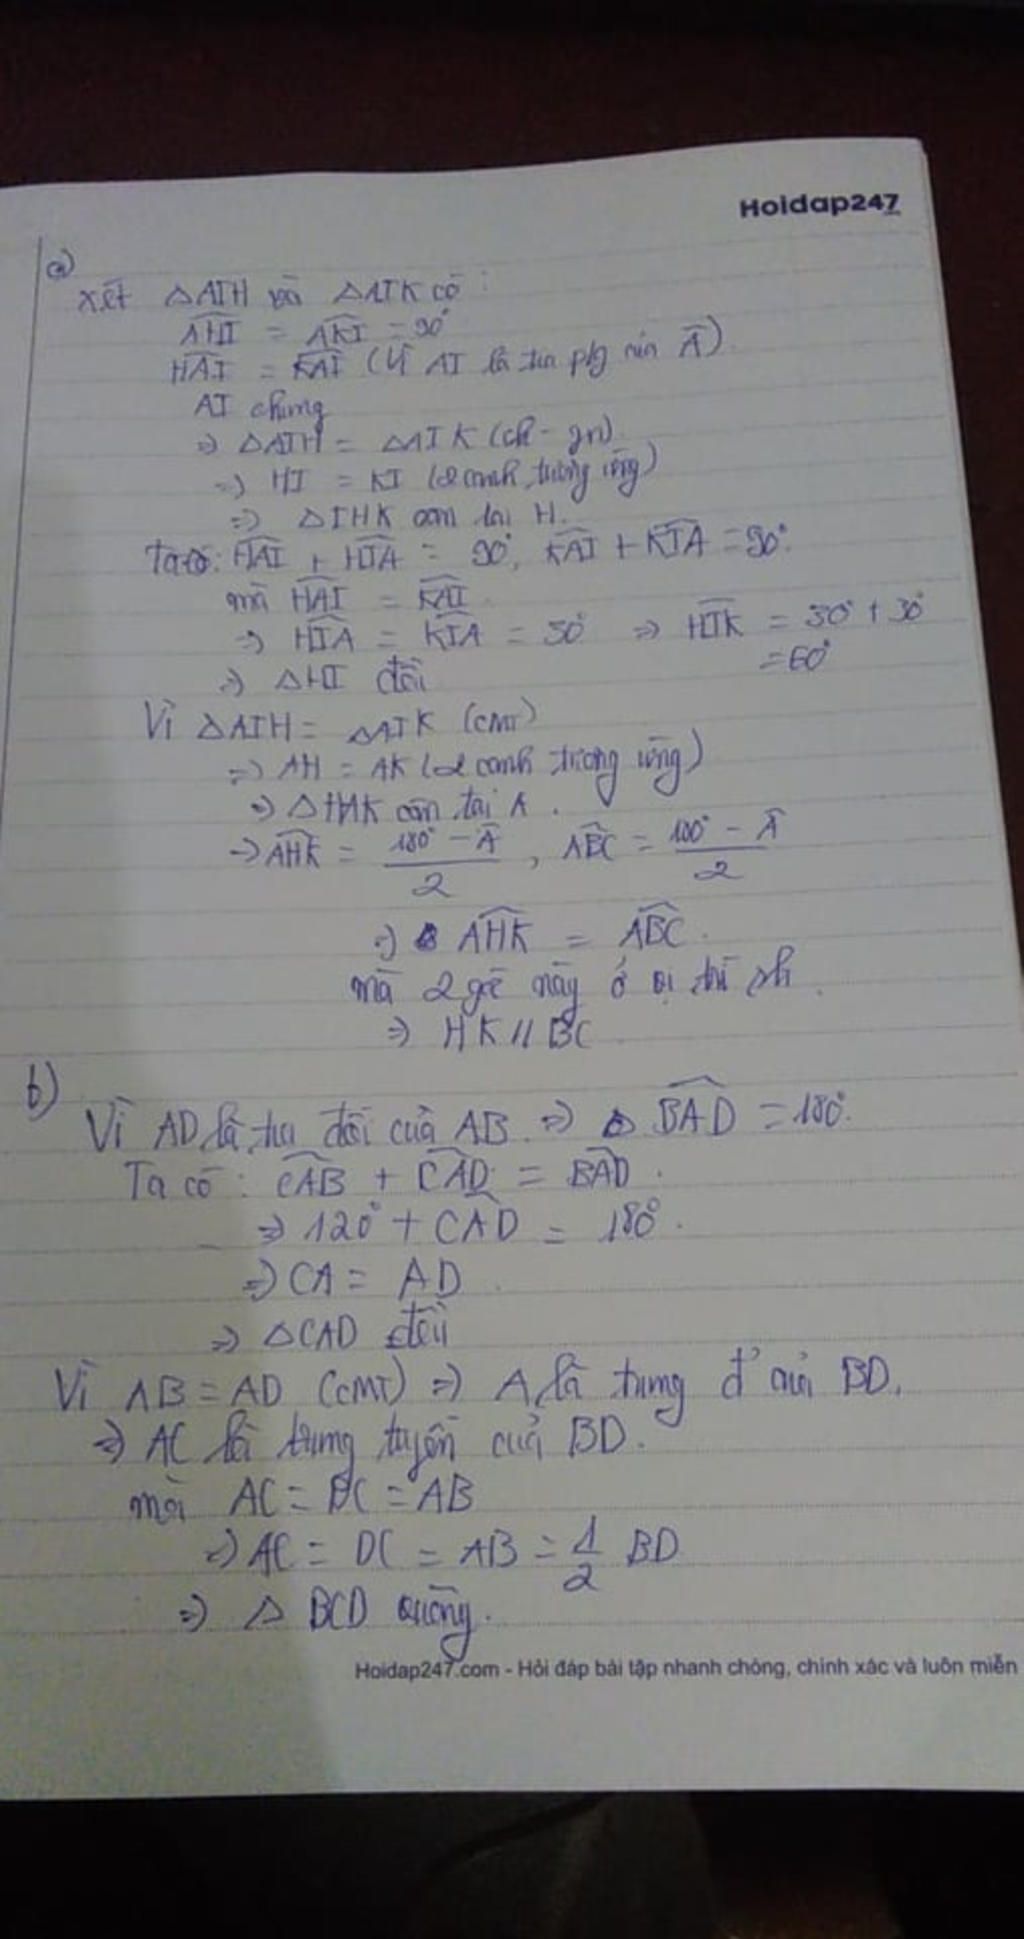 Hoidap247
a)
Xét ΔAIH và ΔAIK có:
AHI = AKI = 90°
HAI = KAI (Vì AI là tia phg của A)
AI chung
=> ΔAIH = ΔAIK (ch - gn)
=> HI = KI (2 cạnh tương ứng)
=> ΔIHK cân tại H.
Ta có: HAI + HIA = 90°, KAI + KIA = 90°.
mà HAI = KAI
=> HIA = KIA = 30° => HIK = 30° + 30°
= 60°
=> ΔHI đều
Vì ΔAIH = ΔAIK (cmt)
=> AH = AK (2 cạnh tương ứng)
=> ΔHAK cân tại A.
=> AHK = (180° - A)/2, ABC = (180° - A)/2
=> AHK = ABC.
mà 2 góc này ở vị trí
=> HK // BC
b)
Vì AD là tia đối của AB => BAD = 180°.
Ta có: CAB + CAD = BAD.
=> 120° + CAD = 180°.
=> CA = AD
=> ΔCAD đều
Vì AB = AD (cmt) => A là trung đ' của BD.
=> AC là trung tuyến của BD.
mà AC = DC = AB
=> AC = DC = AB = 1/2 BD
=> Δ BCD vuông.
Hoidap247.com - Hỏi đáp bài tập nhanh chóng, chính xác và luôn miễn